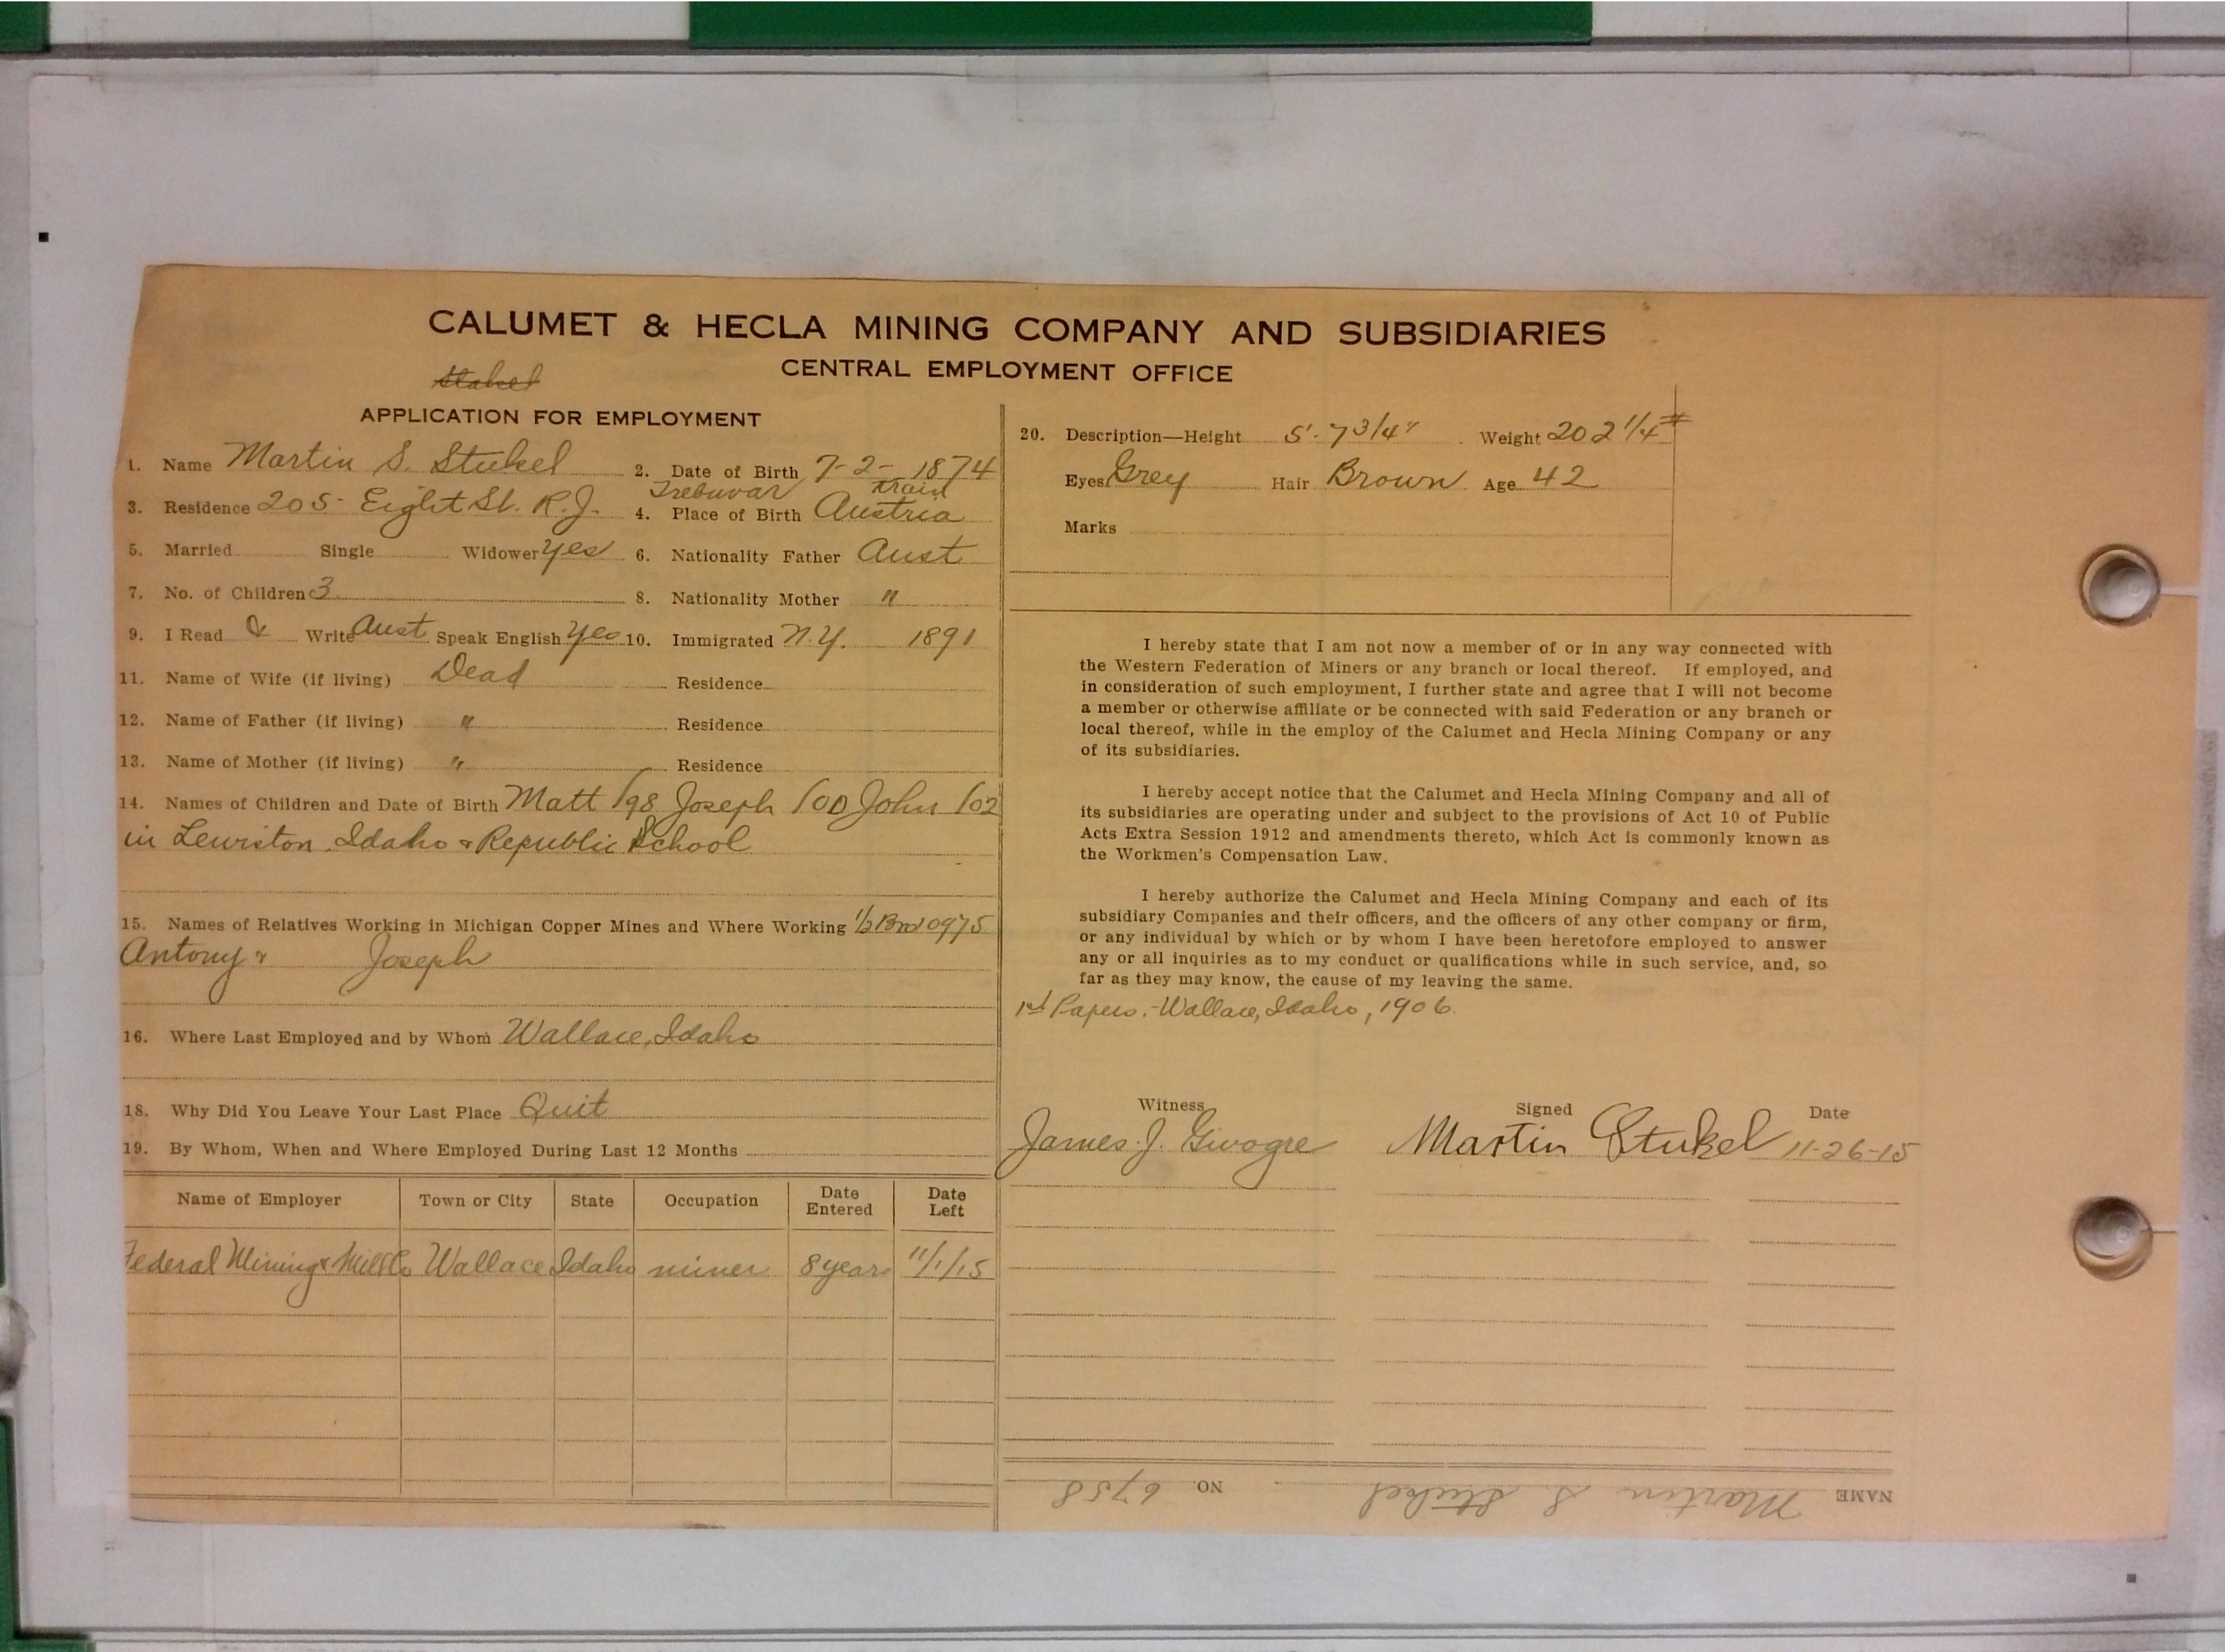 CALUMET & HECLA MINING COMPANY AND SUBSIDIARIES
CENTRAL EMPLOYMENT OFFICE
APPLICATION FOR EMPLOYMENT
1. Name Martin S. Stukel 2. Date of Birth 7-2-1874
3. Residence 205 Eight St. R.J. 4. Place of Birth Trebuvar Krain Austria
5. Married Single Widower yes 6. Nationality Father Aust
7. No. of Children 3 8. Nationality Mother "
9. I Read & Write Aust Speak English Yes 10. Immigrated N.Y. 1891
11. Name of Wife (if living) Dead Residence
12. Name of Father (if living) " Residence
13. Name of Mother (if living) " Residence
14. Names of Children and Date of Birth Matt /98 Joseph /00 John /02
in Lewiston, Idaho & Republic School
15. Names of Relatives Working in Michigan Copper Mines and Where Working 1/2 Bro 0975
Antony & Joseph
16. Where Last Employed and by Whom Wallace, Idaho
18. Why Did You Leave Your Last Place Quit
19. By Whom, When and Where Employed During Last 12 Months
Name of Employer Town or City State Occupation Date Entered Date Left
Federal Mining & Mill Co Wallace Idaho miner 8 years 11/1/15
20. Description—Height 5'-7 3/4" Weight 202 1/4 #
Eyes Grey Hair Brown Age 42
Marks
I hereby state that I am not now a member of or in any way connected with
the Western Federation of Miners or any branch or local thereof. If employed, and
in consideration of such employment, I further state and agree that I will not become
a member or otherwise affiliate or be connected with said Federation or any branch or
local thereof, while in the employ of the Calumet and Hecla Mining Company or any
of its subsidiaries.
I hereby accept notice that the Calumet and Hecla Mining Company and all of
its subsidiaries are operating under and subject to the provisions of Act 10 of Public
Acts Extra Session 1912 and amendments thereto, which Act is commonly known as
the Workmen's Compensation Law.
I hereby authorize the Calumet and Hecla Mining Company and each of its
subsidiary Companies and their officers, and the officers of any other company or firm,
or any individual by which or by whom I have been heretofore employed to answer
any or all inquiries as to my conduct or qualifications while in such service, and, so
far as they may know, the cause of my leaving the same.
1st Papers.-Wallace, Idaho, 1906
Witness Signed Date
James J. Givogre Martin Stukel 11-26-15
NAME Martin S Stukel NO. 6758